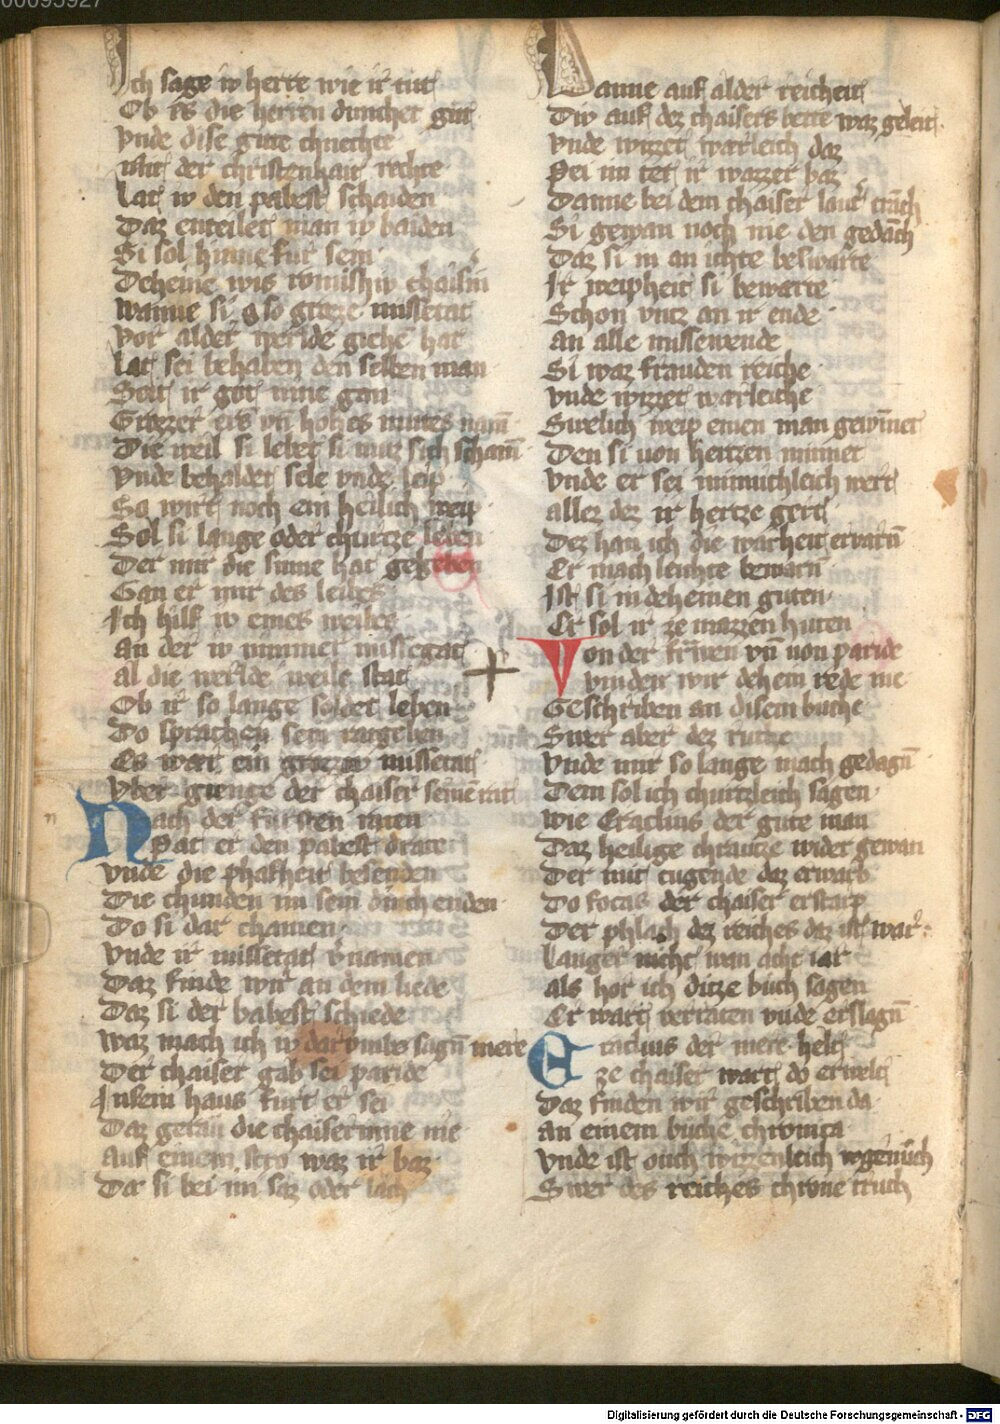 00095927
Ich sage iv herre wie ir tut
Ob iz die herren dunchet gut
Vnde dise gute chnechte
Mit der christenhait rechte
Lat iv den pabest schaiden
Daz enteilet man iv baiden
Si sol hinne fur sein
Deheine wis romishiv chaiserin
wanne si so groze missetat
Vor alder werlde gichet hat
Lat sei behaben den selben man
Seit ir got min gan
Grozzer ern vn̄ hohes mutes
Die weil si lebet si muz sich scham̄
Vnde behaldet sele vnde leip
So wirt noch ein heilich weip
Sol si lange oder churtze leben
Der mir die sinne hat gegeben
Gan er mir des leibes
Ich hilf iv eines weibes
An der iv nimmer missegat
al die werlde weile stat
Ob ir so lange soldet leben
Do sprachen sein ratgeben
Ez wær ein grozziv missetat
Vber gienge der chaiser seinē rat
Nach der fursten raten
Pat er den pabest drate
Vnde die phafheit besenden
Die chunden im sein durch enden
Do si dar chamen
Vnde ir missetat v̄namen
Daz finde wir an dem liede
Daz si der babest schiede
waz mach ich iv dar vmbe sagn̄ mere
Der chaiser gab sei paride
In sein haus furt er sei
Daz getan die chaiserinne nie
auf einem stro waz ir baz
Da si bei im saz oder lach
Danne auf alder reicheit
Div auf dez chaisers bette waz geleit
Vnde wizzet warleich daz
Pei im tet ir wazzer baz
Danne bei dem chaiser lauter tranch
Si gewan noch nie den gedanch
Daz si in an ichte beswarte
Ir weipheit si bewarte
Schon vntz an ir ende
an alle missewende
Si waz frauden reiche
vnde wizzet warleiche
Swelich weip einen man gewinnet
Den si von hertzen minnet
Vnde er sei minnichleich wert
allez dez ir hertze gert
Dez han ich die warheit ervarn̄
Er mach leichte bewarn
Ist si in deheinen guten
Er sol ir ze mazzen huten
Von der frāuen vn̄ von paride
vinden wir dehein rede nie
Geschriben an disem buche
Swer aber dez ruche
Vnde mir so lange mach gedagn̄
Dem sol ich churtzleich sagen
wie Eraclius der gute man
Daz heilige chræutze wider gewan
Der mit tugende daz erwarb
Do focas der chaiser erstarp
Der phlach dez reiches daz ist war
langer nicht wan acht iar
als hor ich ditze buch sagen
Er wart verraten vnde erslagn̄
Eraclius der mere helt
ze chaiser wart do erwelt
Daz finden wir geschriben da
an einem buche chronica
Vnde ist ouch wizzenleich
Swer des reiches chrone truch
Digitalisierung gefördert durch die Deutsche Forschungsgemeinschaft - DFG